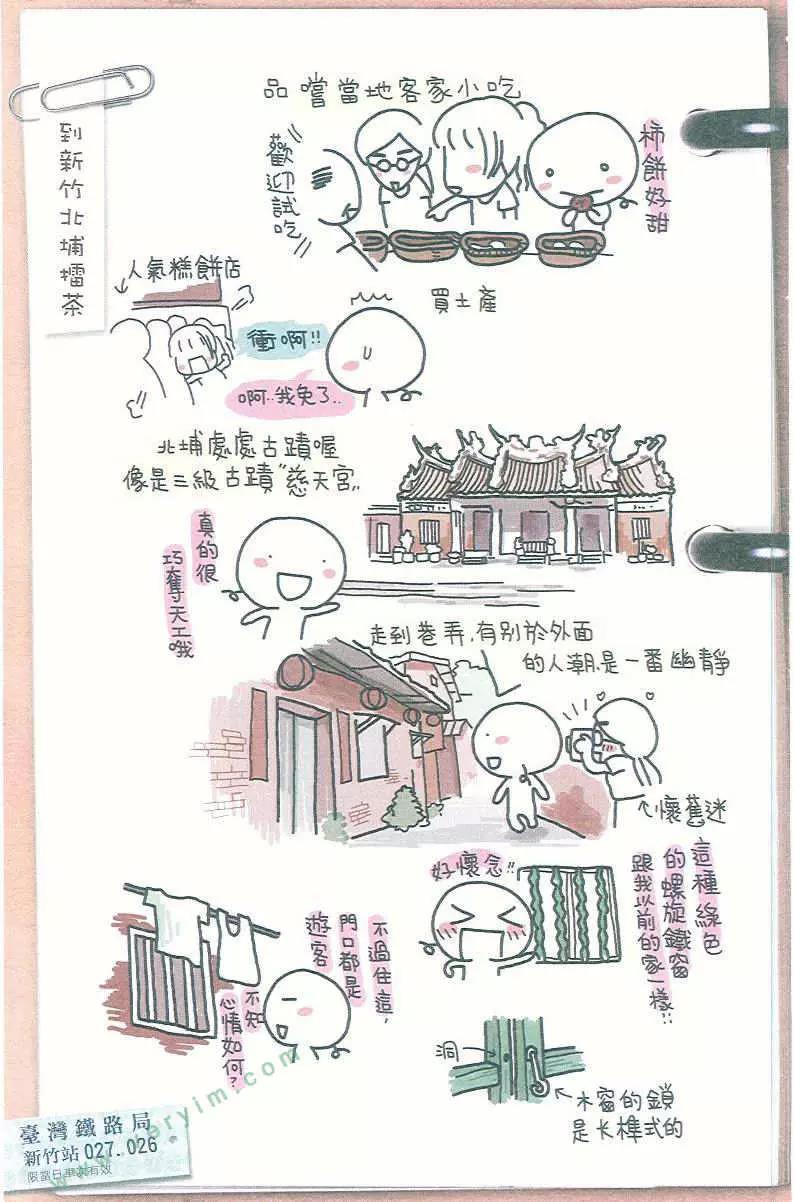 到新竹北埔擂茶
品嚐當地客家小吃
歡迎試吃
柿餅好甜
買土產
人氣糕餅店
衝啊!!
啊..我免了..
北埔處處古蹟喔
像是三級古蹟"慈天宮"
真的很
巧奪天工哦
走到巷弄,有別於外面
的人潮.是一番幽靜
懷舊迷
好懷念!!
這種綠色
的螺旋鐵窗
跟我以前的家一樣!!
不過住這,
門口都是
遊客
不知
心情如何?
洞
木窗的鎖
是長榫式的
臺灣鐵路局
新竹站 027.026